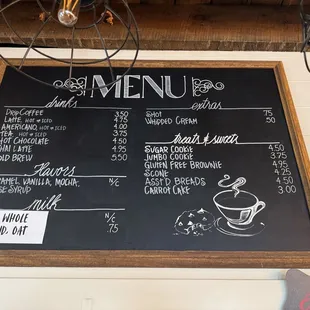 MENU
drinks
DRIP COFFEE 3.50
LATTE, HOT or ICED 4.75
AMERICANO, HOT or ICED 4.00
TEA, HOT or ICED
HOT CHOCOLATE 4.25
HAI LATTE 4.95
OLD BREW 5.50
Flavors
AMEL, VANILLA, MOCHA, N/C
SE SYRUP
milk
WHOLE N/C
ND, OAT .75
extras
SHOT 75
WHIPPED CREAM 50
treats & sweets
SUGAR COOKIE 4.50
JUMBO COOKIE 3.75
GLUTEN FREE BROWNIE 4.95
SCONE 4.25
ASST'D BREADS 4.50
CARROT CAKE 3.00